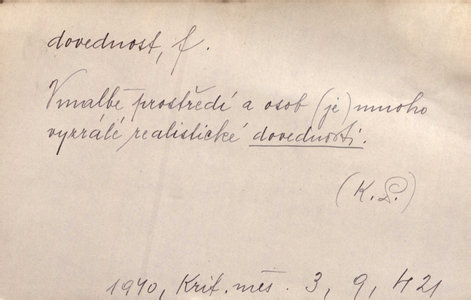 dovednost, f.
V malbě prostředí a osob (je) mnoho
vyzrálé realistické dovednosti.
(K. P.)
1940, Krit. měs. 3, 9, 421